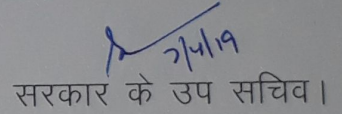 7/4/19
सरकार के उप सचिव।